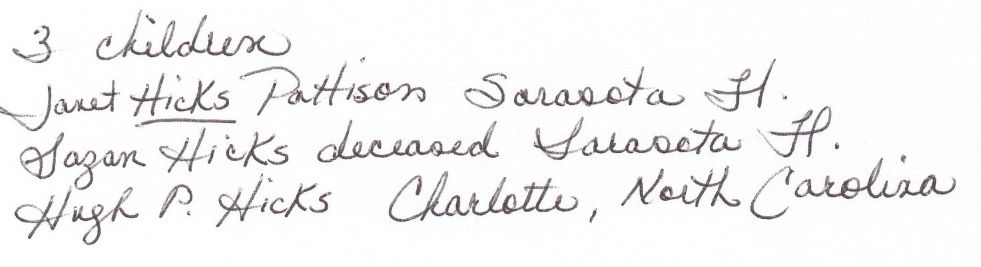 3 children
Janet Hicks Pattison Sarasota Fl.
Sazan Hicks deceased Sarasota Fl.
Hugh P. Hicks Charlotte, North Carolina